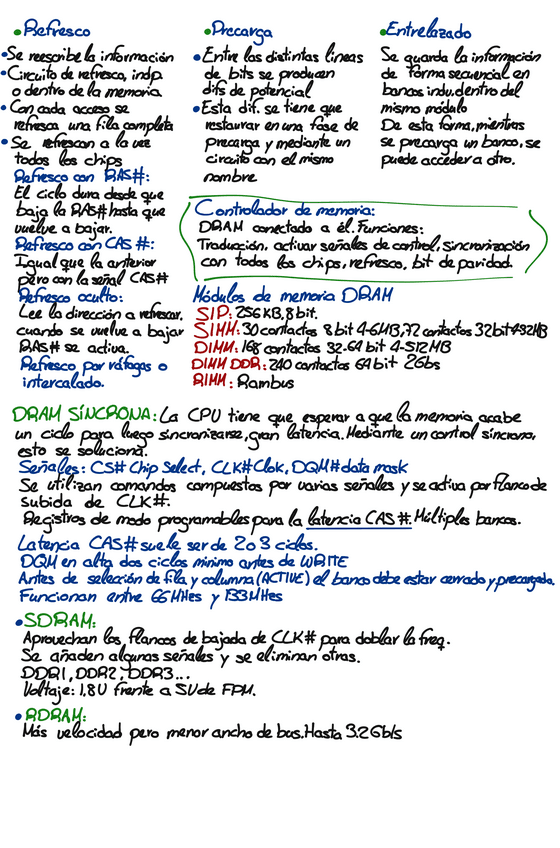 •Refresco
•Se reescribe la información
•Circuito de refresco, indp.
o dentro de la memoria
•Con cada acceso se
refresca una fila completa
•Se refrescan a la vez
todos los chips
Refresco con RAS#:
El ciclo dura desde que
baja la RAS# hasta que
vuelve a bajar.
Refresco con CAS #:
Igual que la anterior
pero con la señal CAS#
Refresco oculto:
Lee la dirección a refrescar.
cuando se vuelve a bajar
RAS# se activa.
Refresco por ráfagas o
intercalado.
•Precarga
•Entre las distintas lineas
de bits se producen
difs de potencial
•Esta dif. se tiene que
restaurar en una fase de
precarga y mediante un
circuito con el mismo
nombre
•Entrelazado
Se guarda la información
de forma secuencial en
bancos indv. dentro del
mismo módulo
De esta forma, mientras
se precarga un banco, se
puede acceder a otro.
Controlador de memoria:
DRAM conectado a él. Funciones:
Traducción, activar señales de control, sincronización
con todos los chips, refresco, bit de paridad.
Módulos de memoria DRAM
SIP: 256KB, 8 bit.
SIMM: 30 contactos 8 bit 4-6MB, 72 contactos 32bit 4-32MB
DIMM: 168 contactos 32-64 bit 4-512MB
DIMM DDR: 240 contactos 64 bit 2Gbs
RIMM: Rambus
DRAM SÍNCRONA: La CPU tiene que esperar a que la memoria acabe
un ciclo para luego sincronizarse, gran latencia. Mediante un control síncrono,
esto se soluciona.
Señales: CS# Chip Select, CLK# Clok, DQM# data mask
Se utilizan comandos compuestos por varias señales y se activa por flanco de
subida de CLK#.
Registros de modo programables para la latencia CAS#. Múltiples bancos.
Latencia CAS# suele ser de 2 o 3 ciclos.
DQM en alta dos ciclos minimo antes de WRITE
Antes de selección de fila y columna (ACTIVE) el banco debe estar cerrado y precargado.
Funcionan entre 66MHes y 133MHes
•SDRAM:
Aprovechan los flancos de bajada de CLK# para doblar la freq.
Se añaden algunas señales y se eliminan otras.
DDR1, DDR2, DDR3...
Voltaje: 1,8V frente a 5V de FPM.
•RDRAM:
Más velocidad pero menor ancho de bus. Hasta 3.2Gb/s